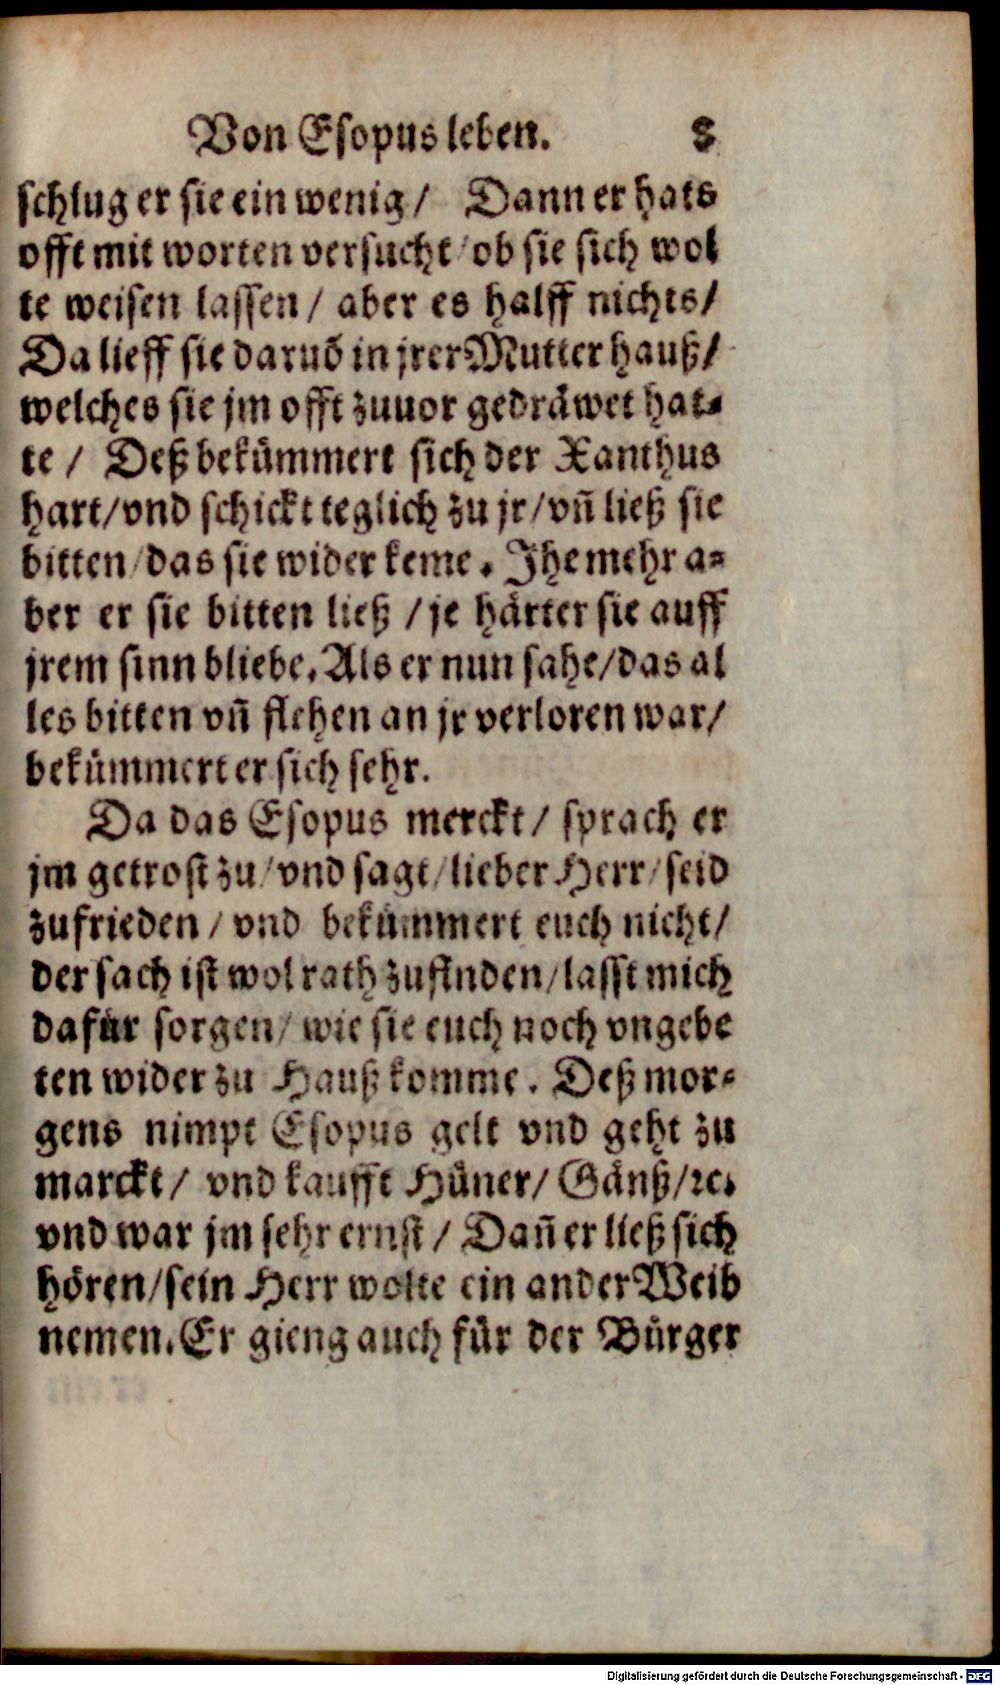 Von Esopus leben. 8
schlug er sie ein wenig / Dann er hats
offt mit worten versucht / ob sie sich wol
te weisen lassen / aber es halff nichts /
Da lieff sie daruõ in jrer Mutter hauß /
welches sie jm offt zuuor gedräwet hat-
te / Deß bekümmert sich der Xanthus
hart / vnd schickt teglich zu jr / vñ ließ sie
bitten / das sie wider keme. Jhe mehr a-
ber er sie bitten ließ / je härter sie auff
jrem sinn bliebe. Als er nun sahe / das al
les bitten vñ flehen an jr verloren war /
bekümmert er sich sehr.
Da das Esopus merckt / sprach er
jm getrost zu / vnd sagt / lieber Herr / seid
zufrieden / vnd bekümmert euch nicht /
der sach ist wol rath zufinden / lasst mich
dafür sorgen / wie sie euch noch vngebe
ten wider zu Hauß komme. Deß mor-
gens nimpt Esopus gelt vnd geht zu
marckt / vnd kaufft Hüner / Gänß / ꝛc.
vnd war jm sehr ernst / Dañ er ließ sich
hören / sein Herr wolte ein ander Weib
nemen. Er gieng auch für der Bürger
Digitalisierung gefördert durch die Deutsche Forschungsgemeinschaft - DFG